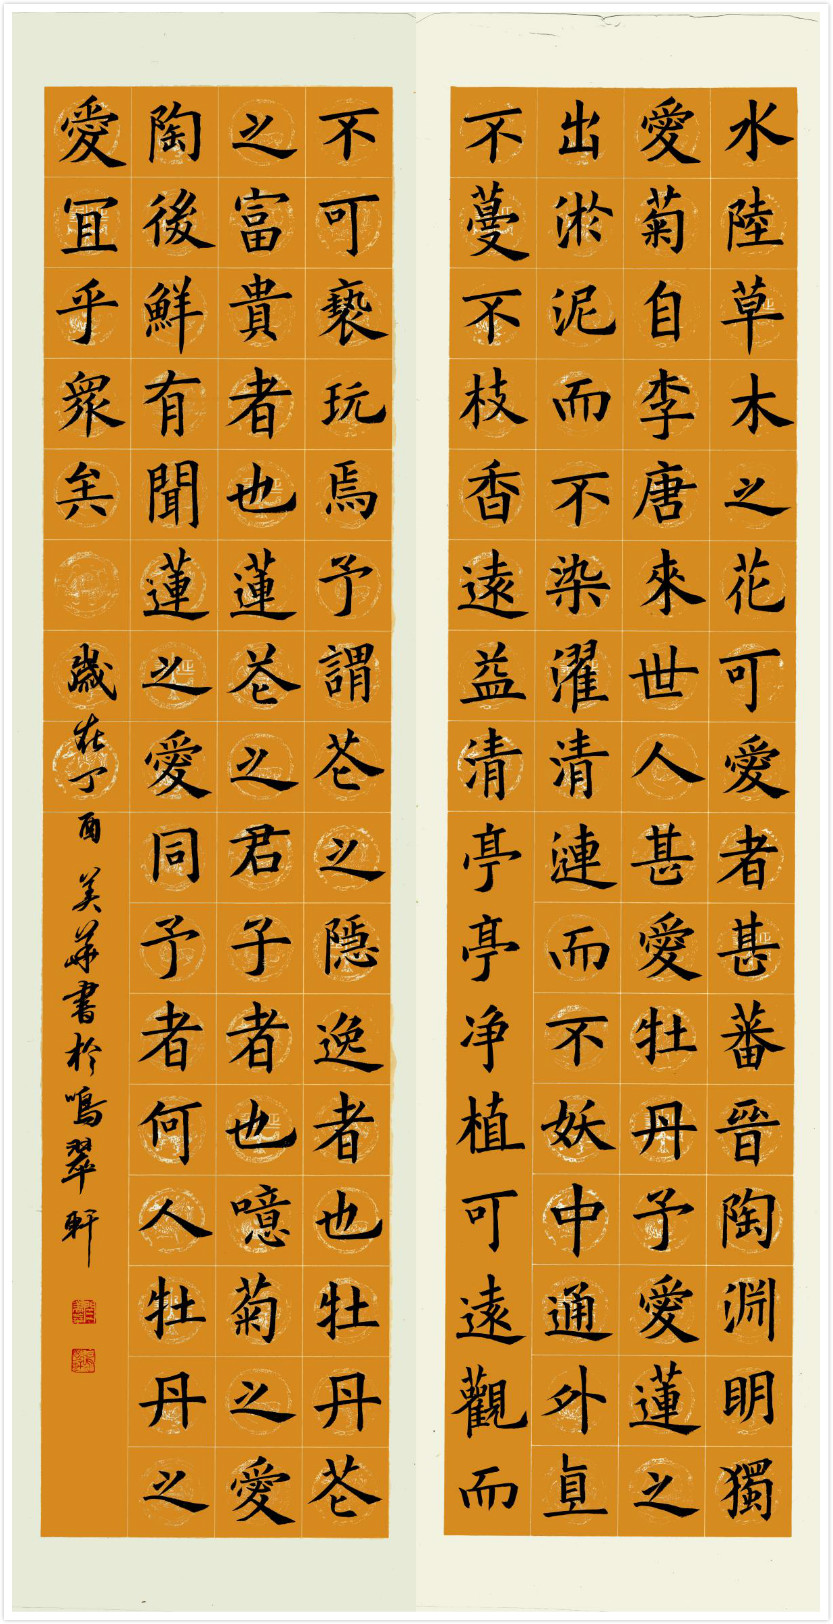 水陸草木之花可愛者甚蕃晉陶淵明獨
愛菊自李唐來世人甚愛牡丹予愛蓮之
出淤泥而不染濯清漣而不妖中通外直
不蔓不枝香遠益清亭亭净植可遠觀而
不可褻玩焉予謂花之隱逸者也牡丹花
之富貴者也蓮花之君子者也噫菊之愛
陶後鮮有聞蓮之愛同予者何人牡丹之
愛宜乎眾矣
歲在丁酉美華書於鳴翠軒